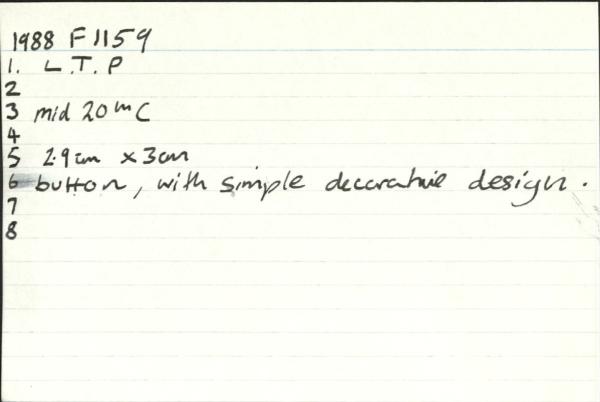 1988 F1159
1. L.T.P
2
3 mid 20th C
4
5 2.9cm x 3cm
6 button, with simple decorative design.
7
8